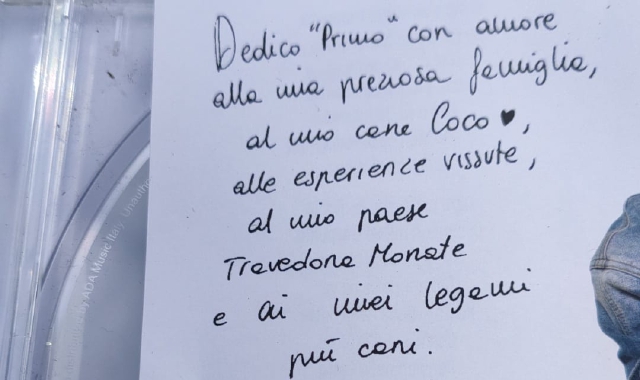 Dedico "Primo" con amore
alla mia preziosa famiglia,
al mio cane Coco ♥,
alle esperienze vissute,
al mio paese
Travedona Monate
e ai miei legami
più cari.
by ADA Music Italy. Unautho